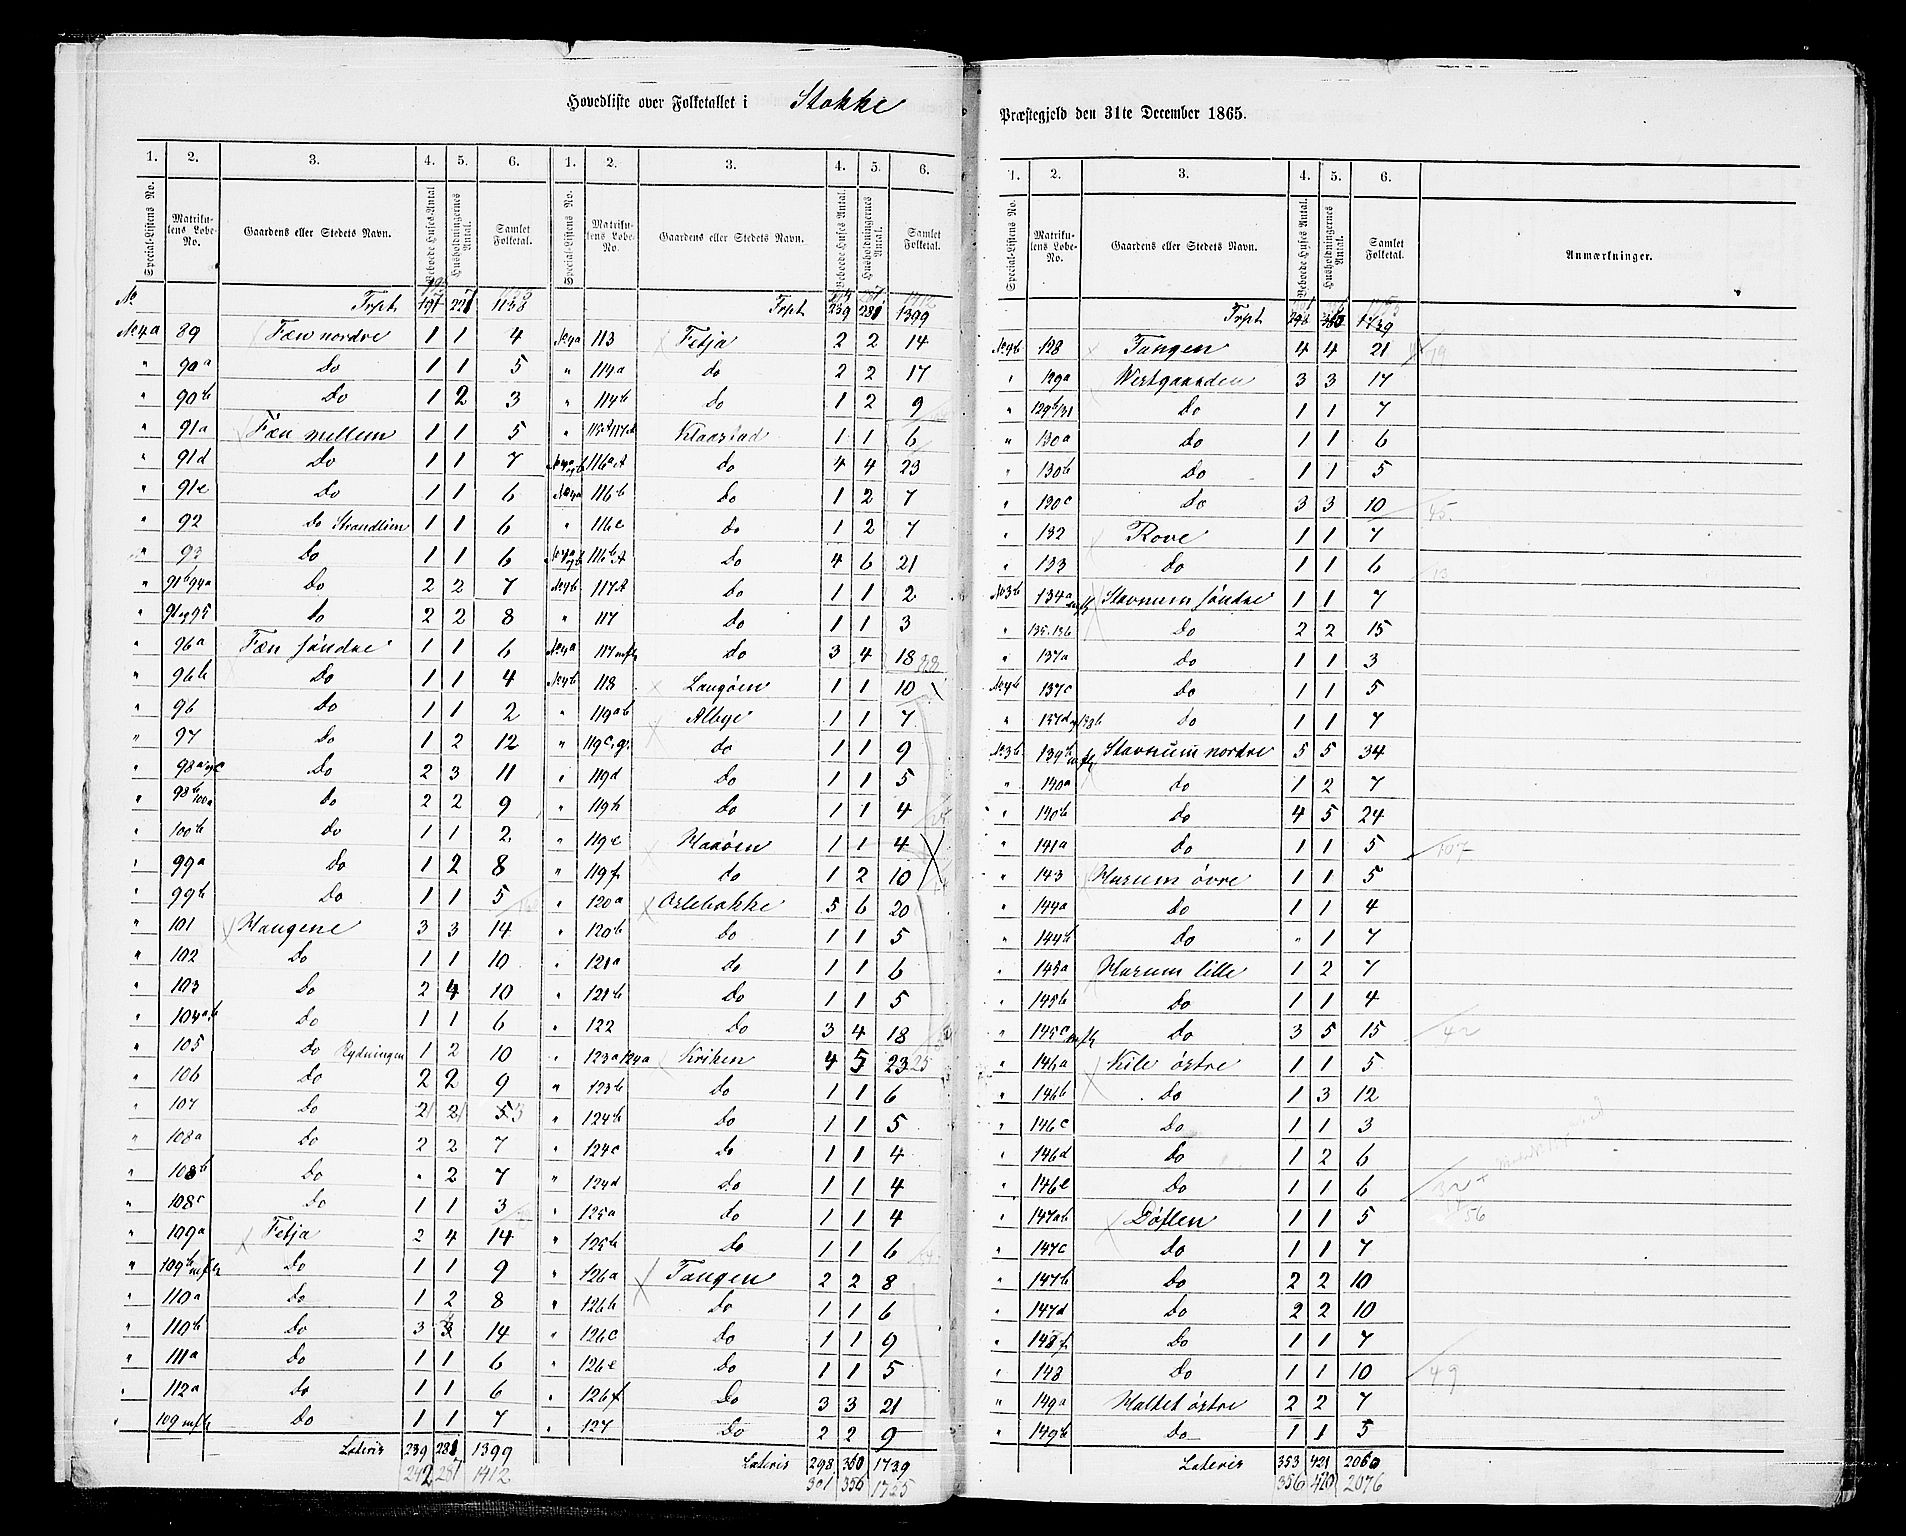 Hovedliste over Folketallet i Stokke Præstegjeld den 31te December 1865.
1. 2. 3. 4. 5. 6. 1. 2. 3. 4. 5. 6.
Special-Listens No. Matrikulens Løbe-No. Gaardens eller Stedets Navn. Beboede Huses Antal Husholdningernes Antal. Samlet Folketal. Special-Listens No. Matrikulens Løbe-No. Gaardens eller Stedets Navn. Beboede Huses Antal. Husholdningernes Antal. Samlet Folketal.
Trpt 197 221 1138
No 4a 89 Fæn nordre 1 1 4
" 90a Do 1 1 5
" 90b Do 1 2 3
" 91a Fæn mellem 1 1 5
" 91d Do 1 1 7
" 91e Do 1 1 6
" 92 Do Strandlien 1 1 6
" 93 Do 1 1 6
" 91b 94a Do 2 2 7
" 95 Do 2 2 8
" 96a Fæn søndre 1 1 6
" 96b Do 1 1 4
" 96 Do 1 1 2
" 97 Do 1 2 12
" 98a Do 2 3 11
" 98b 100a Do 2 2 9
" 100b Do 1 1 2
" 99a Do 1 2 8
" 99b Do 1 1 5
" 101 Haugene 3 3 14
" 102 Do 1 1 10
" 103 Do 2 4 10
" 104a.b Do 1 1 6
" 105 Do Rydningen 1 2 10
" 106 Do 2 2 9
" 107 Do 2 2 5
" 108a Do 2 2 7
" 108b Do " 2 7
" 108c Do 1 1 3
" 109a Fetja 2 4 14
" 109b m.fl. Do 1 1 9
" 110a Do 1 2 8
" 110b Do 3 3 14
" 111a Do 1 1 6
" 112a Do 1 1 6
" 109 m.fl. Do 1 1 7
Lateris 239 281 1399
242 287 1412
Trpt 239 281 1399
No 4a 113 Fetja 2 2 14
" 114a do 2 2 17
" 114b Do 1 2 9
" Klaastad 1 1 6
116a do 4 4 23
No 4a 116b Do 1 2 7
" 116c do 1 2 7
116b Do 4 6 21
No 4b 117 Do 1 1 2
" 117 Do 1 1 3
No 4a 117 m.fl. do 3 4 18
No 4b 118 Langøen 1 1 10
" 119a b Albye 1 1 7
" 119c do 1 1 9
" 119d Do 1 1 5
" 119h Do 1 1 4
" 119e Haaøen 1 1 4
" 119f do 1 2 10
" 120a Oslebakke 5 6 20
" 120b Do 1 1 5
" 121a do 1 1 6
" 121b Do 1 1 5
" 122 Do 3 4 18
" 123a 124a Kriken 4 5 23 25
" 123b Do 1 1 6
" 124b Do 1 1 5
" 124c Do 1 1 4
" 124d Do 1 1 4
" 125a Do 1 1 4
" 125b Do 1 1 6
" 126a Tangen 2 2 8
" 126b Do 1 1 6
" 126c Do 1 1 9
" 126e Do 1 1 5
" 126f Do 3 3 21
" 127 Do 2 2 9
Lateris 298 360 1739
301 356 1755
1. 2. 3. 4. 5. 6.
Special-Listens No. Matrikulens Løbe-No. Gaardens eller Stedets Navn. Beboede Huses Antal. Husholdningernes Antal. Samlet Folketal. Anmærkninger.
Trpt 298 360 1739
No 4b 128 Tangen 4 4 21
" 129a Vestgaarden 3 3 17
" 129b/31 Do 1 1 7
" 130a Do 1 1 6
" 130b Do 1 1 5
" 130c Do 3 3 10
" 132 Rove 1 1 7
" 133 do 1 1 6
No 3b 134a Stavnum søndre 1 1 7
" 135.136 Do 2 2 15
" 137a Do 1 1 3
No 4b 137c Do 1 1 5
" 137d Do 1 1 7
No 3b 139b m.fl. Stavnum nordre 5 5 34
" 140a do 1 2 7
" 140b Do 4 5 24
" 141a Do 1 1 5 107
" 143 Harum øvre 1 1 5
" 144a Do 1 1 4
" 144b Do " 1 7
" 145a Harum lille 1 2 7
" 145b Do 1 1 4
" 145c m.fl. Do 3 5 15 42
" 146a Kile østre 1 1 5
" 146b Do 1 3 12
" 146c Do 1 1 3
" 146d Do 1 2 6
" 146e Do 1 1 6 32
" 147ab Døflen 1 1 5 56
" 147c Do 1 1 7
" 147b Do 2 2 10
" 147d Do 2 2 10
" 148f Do 1 1 7
" 148 Do 1 1 10 49
" 149a Haltet østre 2 2 7
" 149b Do 1 1 5
Lateris 353 421 2060
356 420 2076